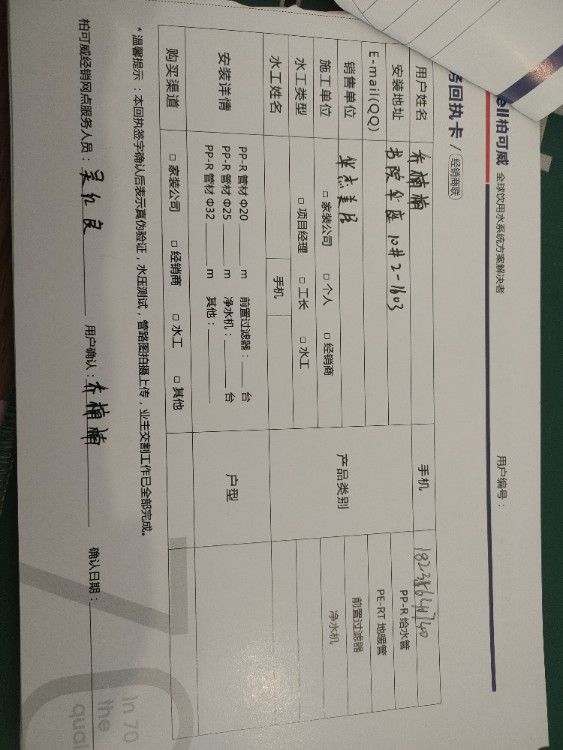 ell柏可威 全球饮用水系统方案解决者
用户编号：
务回执卡 / 经销商联
用户姓名 乔楠楠 手机
安装地址 书院华庭 10#2-1603 PP-R 给水管
E-mail(QQ) PE-RT 地暖管
销售单位 华杰美居 产品类别 前置过滤器
施工单位 □ 家装公司 □ 个人 □ 经销商 净水机
水工类型 □ 项目经理 □ 工长 □ 水工
水工姓名 手机
安装详情 PP-R 管材 Φ20 ____ m 前置过滤器：____ 台 户型
PP-R 管材 Φ25 ____ m 净水机：____ 台
PP-R 管材 Φ32 ____ m 其他：____
购买渠道 □ 家装公司 □ 经销商 □ 水工 □ 其他
* 温馨提示：本回执签字确认后表示真伪验证，水压测试，管路图拍摄上传，业主交割工作已全部完成。
柏可威经销网点服务人员：吴红良 用户确认：乔楠楠 确认日期：
In 70
the
qual